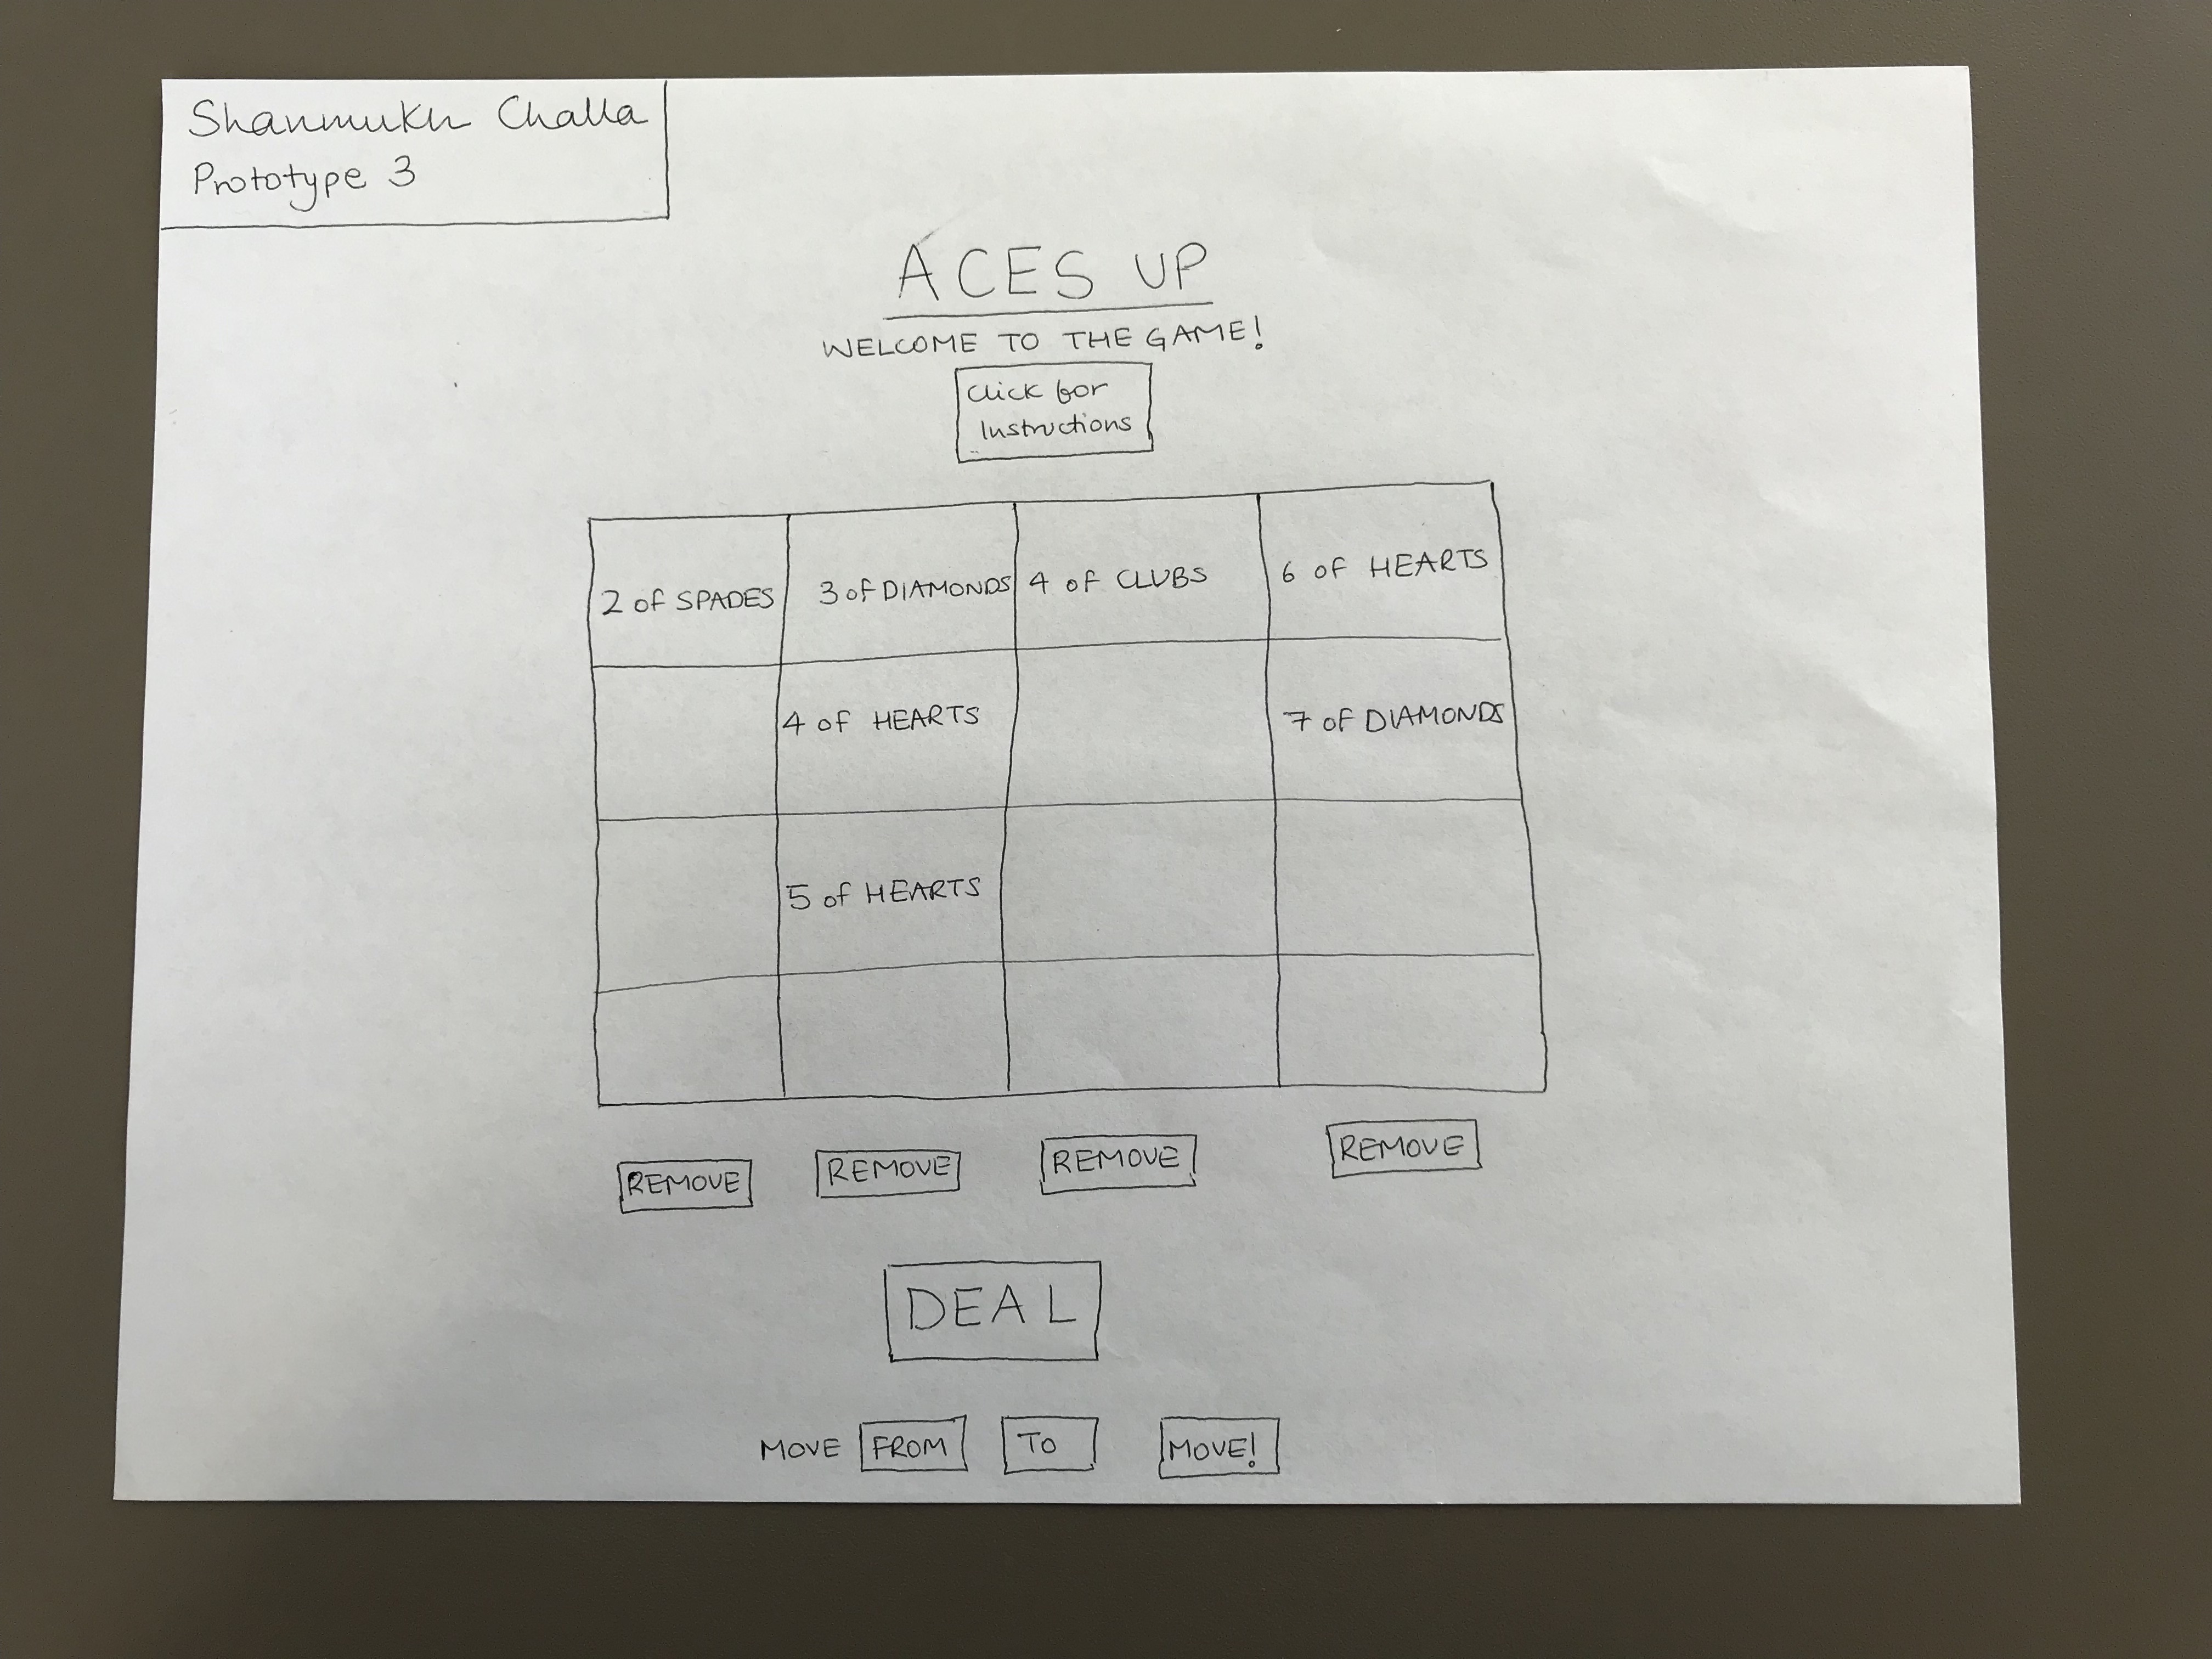 Shanmukh Challa
Prototype 3
ACES UP
WELCOME TO THE GAME!
Click for
Instructions
2 of SPADES 3 of DIAMONDS 4 OF CLUBS 6 OF HEARTS
4 OF HEARTS 7 OF DIAMONDS
5 of HEARTS
REMOVE REMOVE REMOVE REMOVE
DEAL
MOVE FROM TO MOVE!